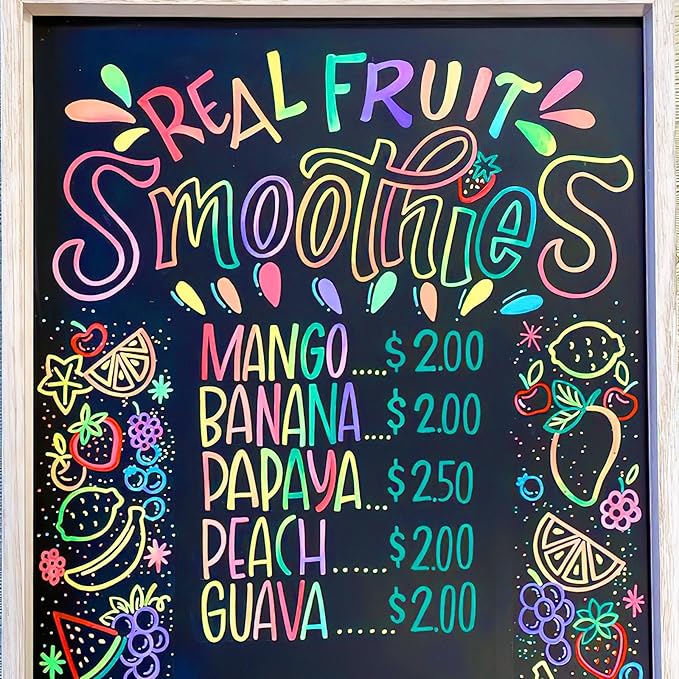 REAL FRUIT
SmoothieS
MANGO.....$2.00
BANANA....$2.00
PAPAYA...$2.50
PEACH......$2.00
GUAVA......$2.00